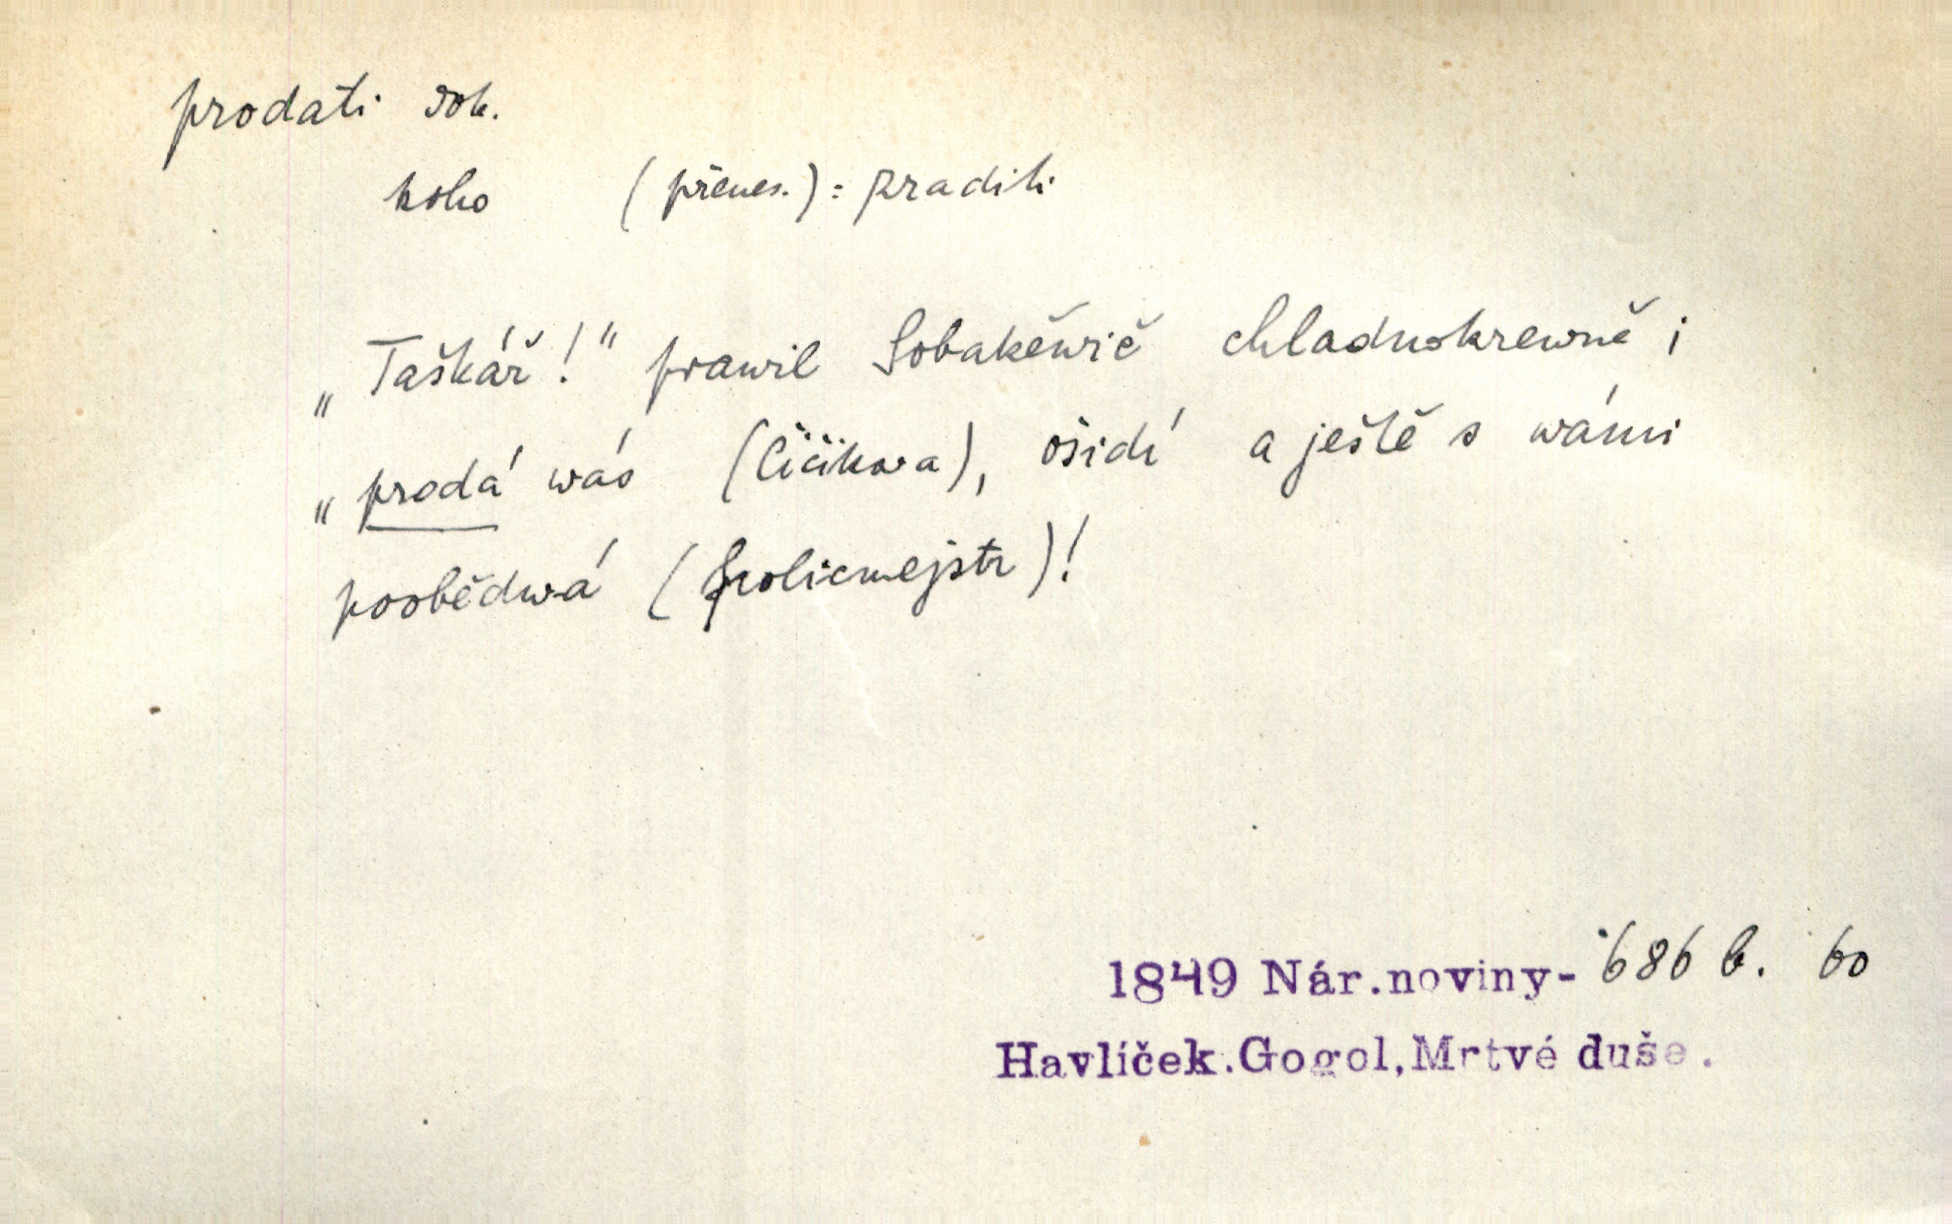 prodati dok.
koho (přenes.): zraditi
„Taškář!“ prawil Sobakěwič chladnokrewně i
„prodá wás (Čičikwa), ošidí a ještě s wámi
poobědwá (policmejstr)!
1849 Nár.noviny- 686 b. 60
Havlíček.Gogol,Mrtvé duše.